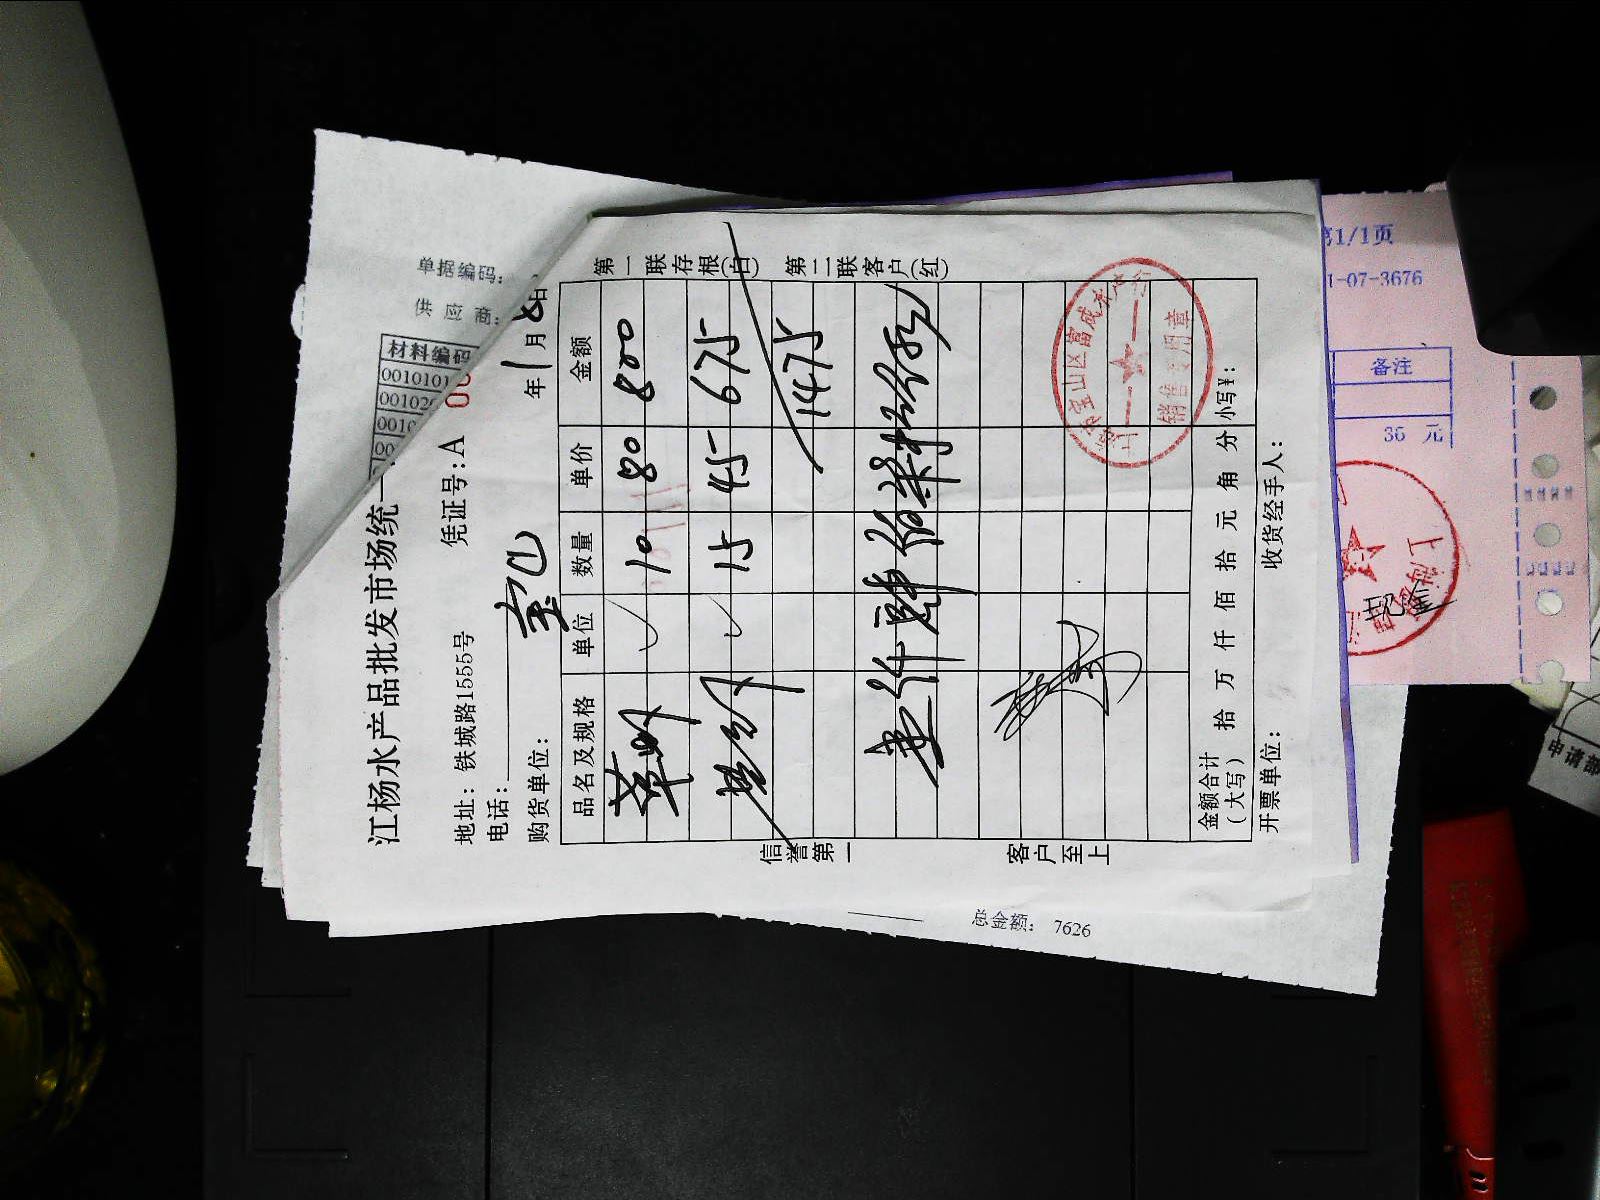 江杨水产品批发市场统一
地址：铁城路1555号
凭证号：A 00
电话：
购货单位：
年1月8日
品名及规格 单位 数量 单价 金额
草虾 10 80 800
15 45 675
1475
壹仟肆佰柒拾伍元
金额合计（大写） 拾 万 仟 佰 拾 元 角 分 小写¥：
开票单位：
收货经手人：
第一联存根（白） 第二联客户（红）
信誉第一
客户至上
宝山区富成水产
销售专用章
单据编码：
供应商：
材料编码
001010
00102
0010
00
总金额： 7626
第1/1页
1-07-3676
备注
36 元
上海
申请部